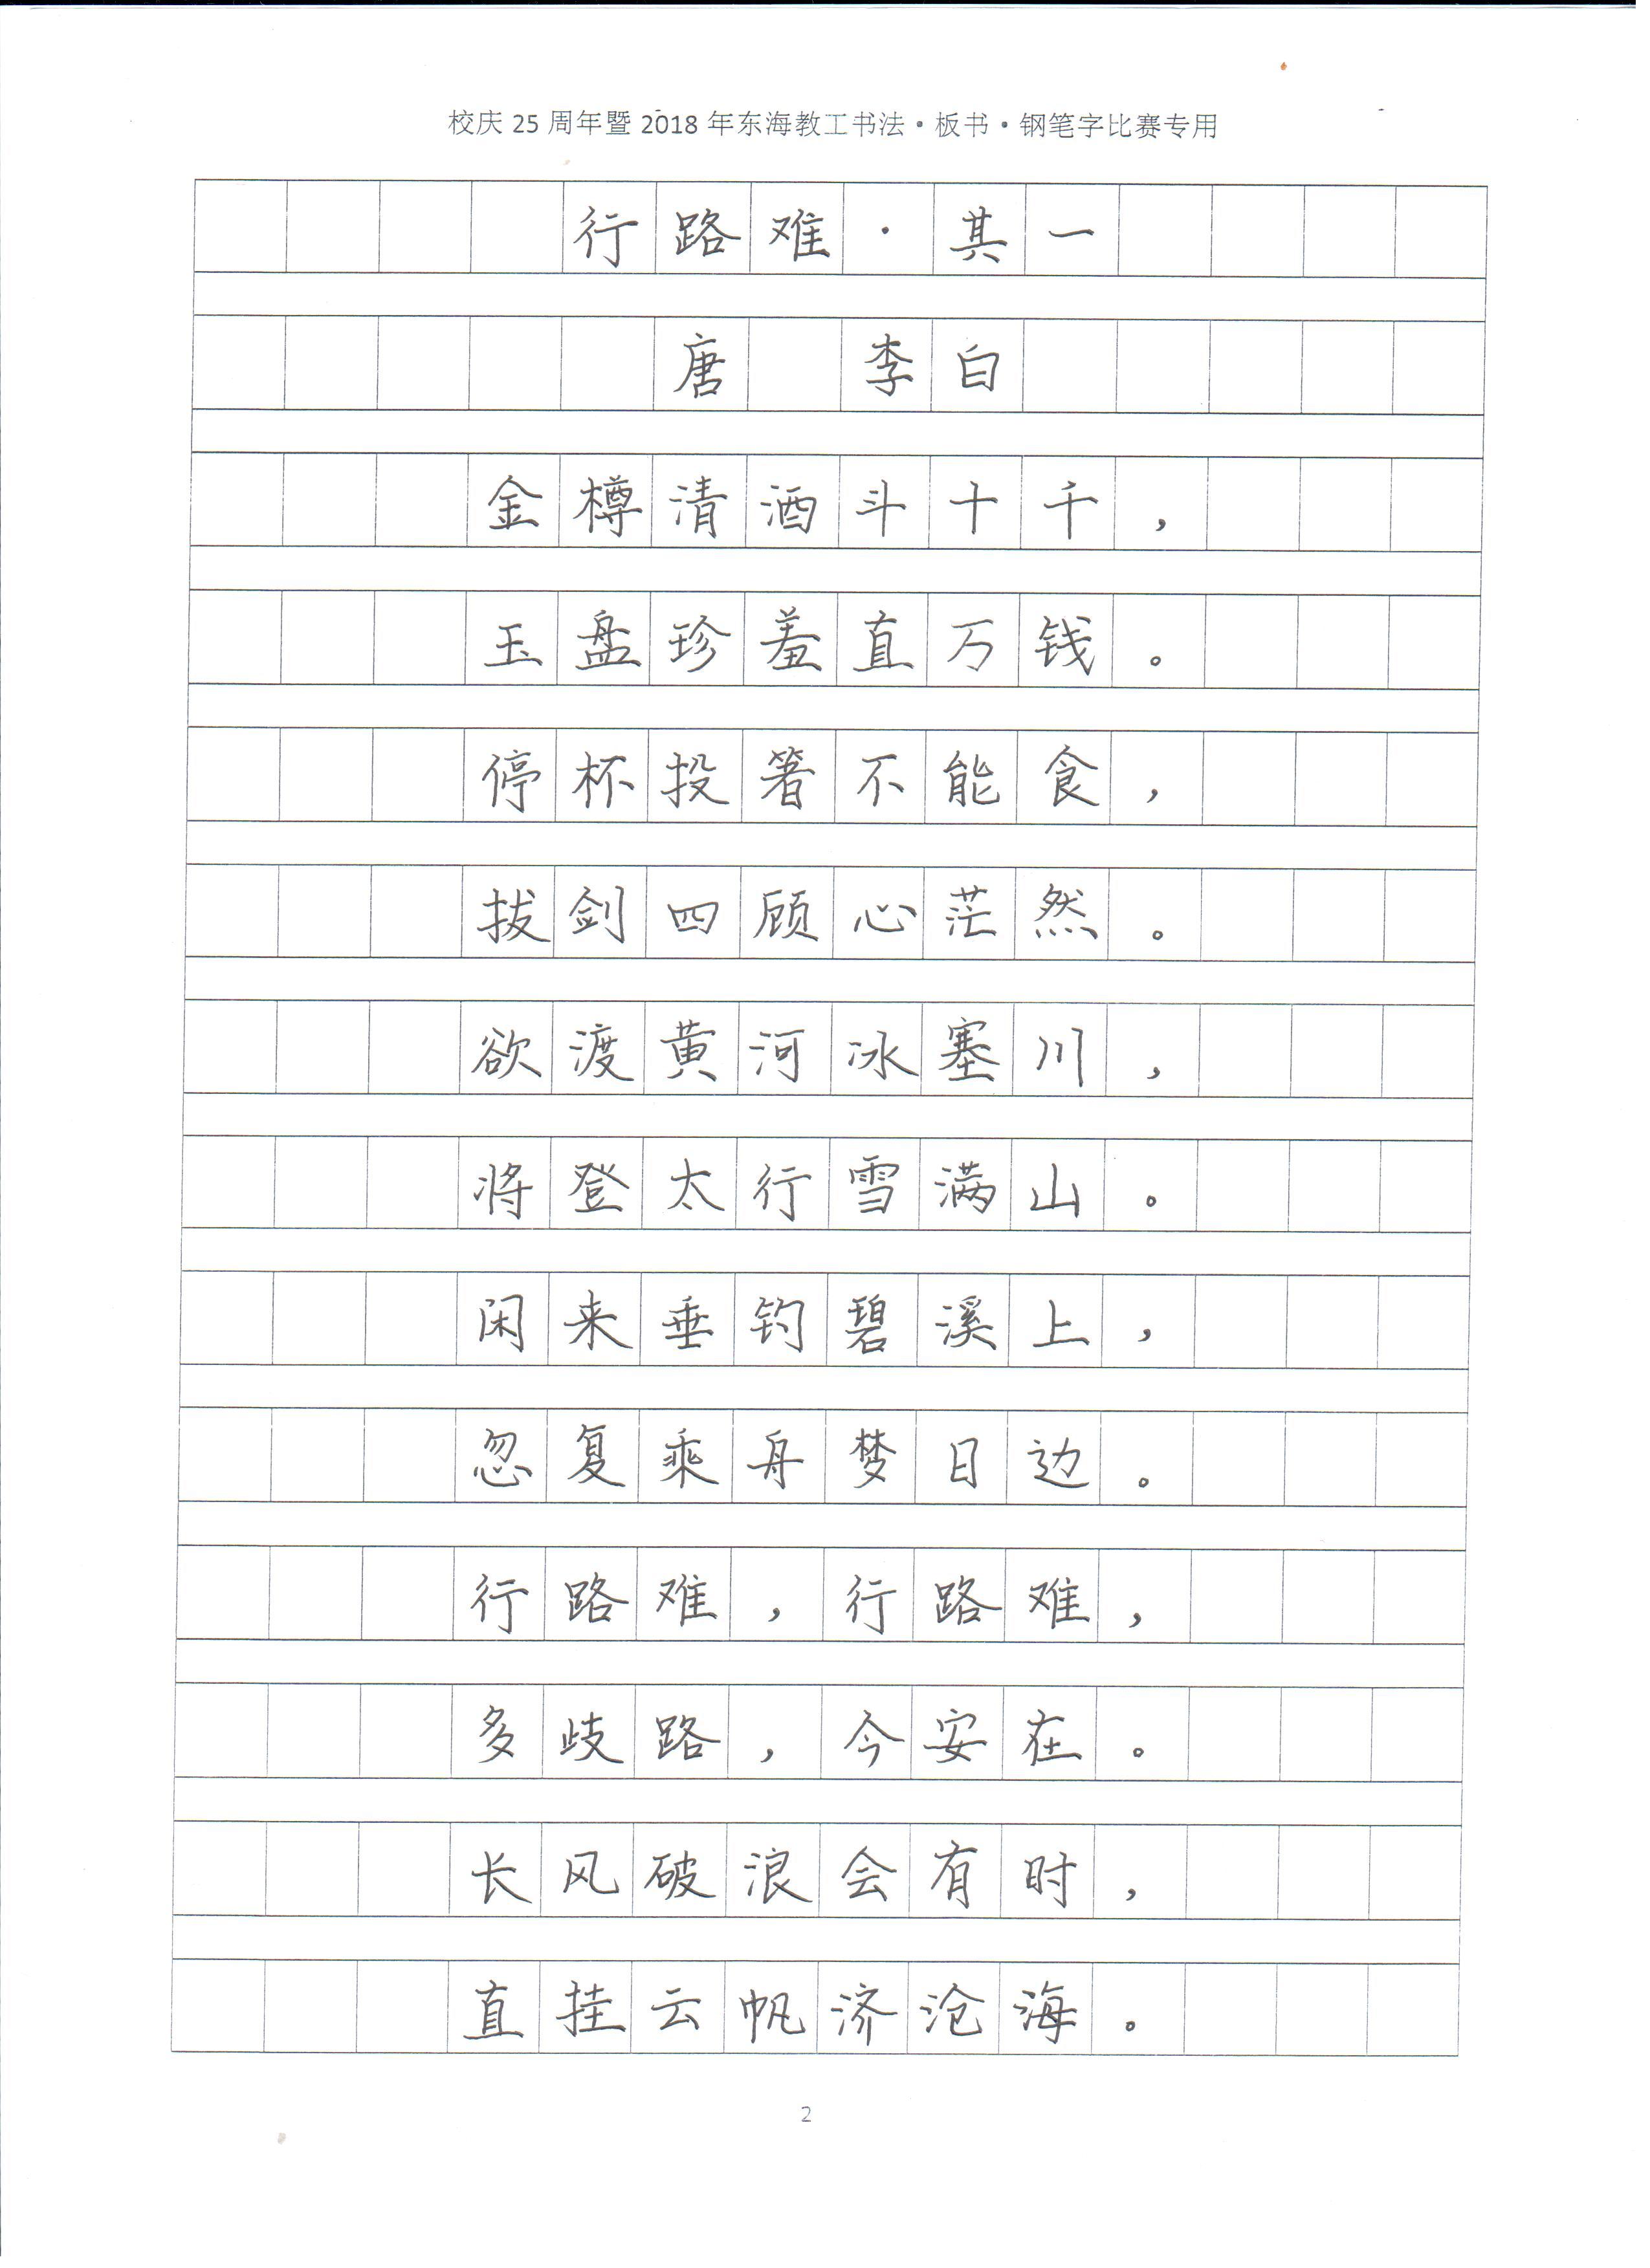 校庆 25 周年暨 2018 年东海教工书法·板书·钢笔字比赛专用
行路难·其一
唐 李白
金樽清酒斗十千，
玉盘珍羞直万钱。
停杯投箸不能食，
拔剑四顾心茫然。
欲渡黄河冰塞川，
将登太行雪满山。
闲来垂钓碧溪上，
忽复乘舟梦日边。
行路难，行路难，
多歧路，今安在。
长风破浪会有时，
直挂云帆济沧海。
2